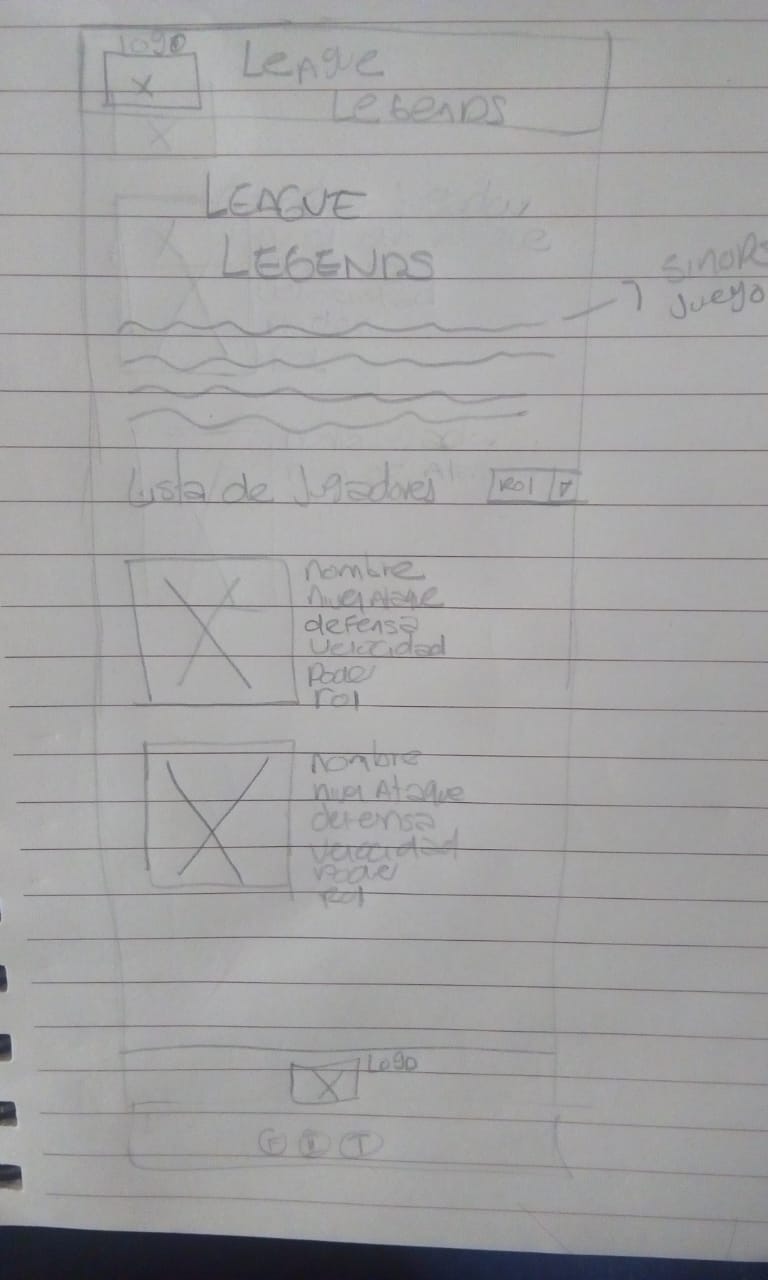 logo
LEAgue
LEGENDS
LEAGUE
LEGENDS
Juego
Lista de Jugadores
Rol
nombre
nivel Ataque
defensa
velocidad
Poder
rol
nombre
nivel Ataque
defensa
velocidad
Poder
Rol
Logo